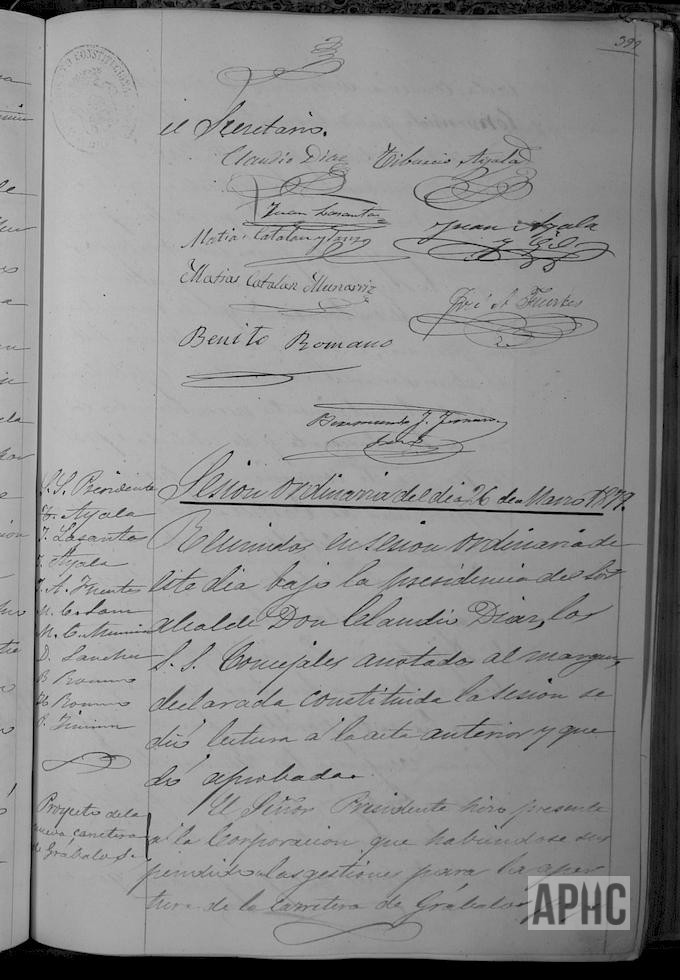 399
el Secretario.
Claudio Diaz Tiburcio Ayala
Juan Lasanta
Matias Catalan y Juan Ayala
y G.
Matias Catalan Munarriz
José A. Fuertes
Benito Romano
S.S. Presidente
T. Ayala
J. Lasanta
J. Ayala
J. A. Fuertes
M. C.
M. C.
D. Sanchez
B. Romano
Romano
Sesion ordinaria del dia 26 de Marzo 1879.
Reunidos en sesion ordinaria de
este dia bajo la presidencia del Sor
alcalde Don Claudio Diaz, los
S.S. Concejales anotados al margen,
declarada constituida la sesion se
dió lectura á la acta anterior y que
dó aprobada.
Proyecto de la
nueva carretera
de Grábalos.
El Señor Presidente hizo presente
á la Corporacion que habiendose sus
pendido las gestiones para la aper
tura de la Carretera de Grábalos
APHC